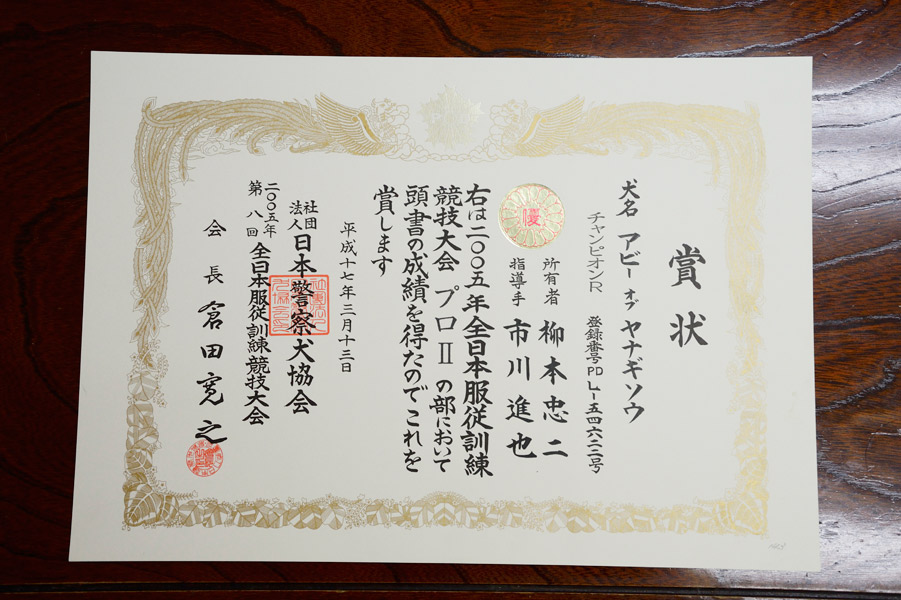 賞状
犬名 アビー オブ ヤナギソウ
チャンピオンR 登録番号PDL-五四六二二号
優
所有者 柳本忠二
指導手 市川進也
右は二〇〇五年全日本服従訓練
競技大会 プロⅡ の部において
頭書の成績を得たのでこれを
賞します
平成十七年三月十三日
社団法人 日本警察犬協会
二〇〇五年 第八回 全日本服従訓練競技大会
会長 倉田寛之